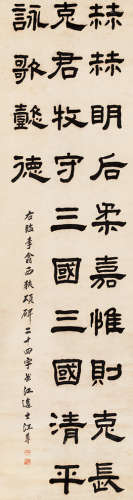 赫赫明后柔嘉惟則克長
克君牧守三國三國清平
詠歌懿德
右臨李翕西狹頌碑二十四字江逸士江尊